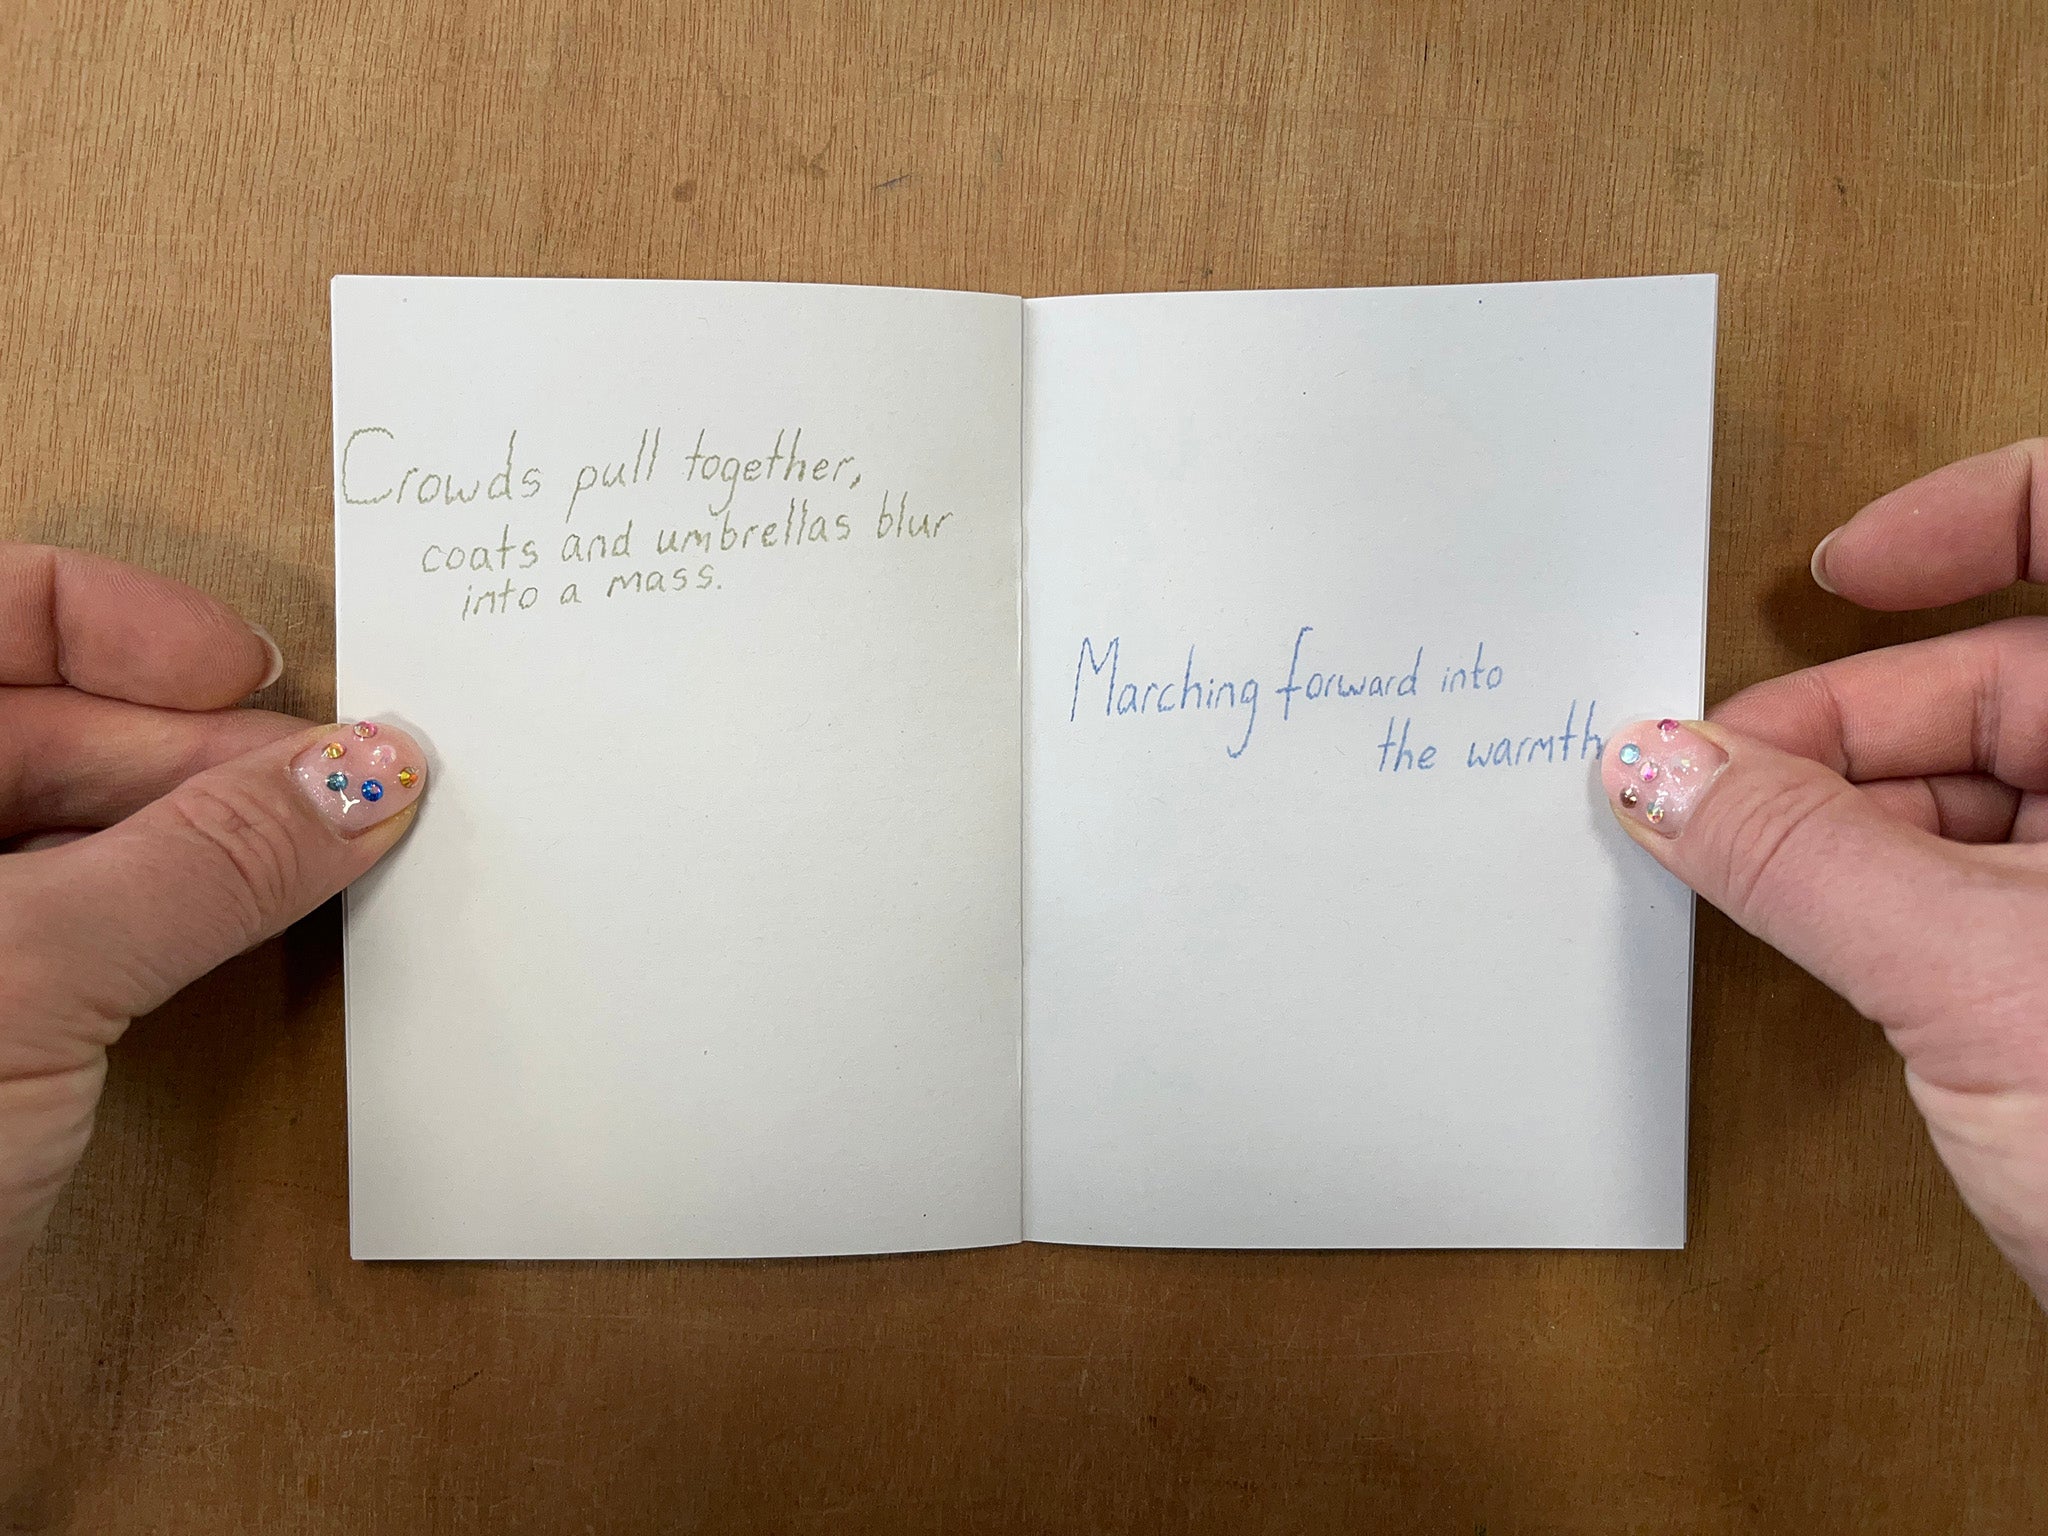 Crowds pull together,
coats and umbrellas blur
into a mass.
Marching forward into
the warmth